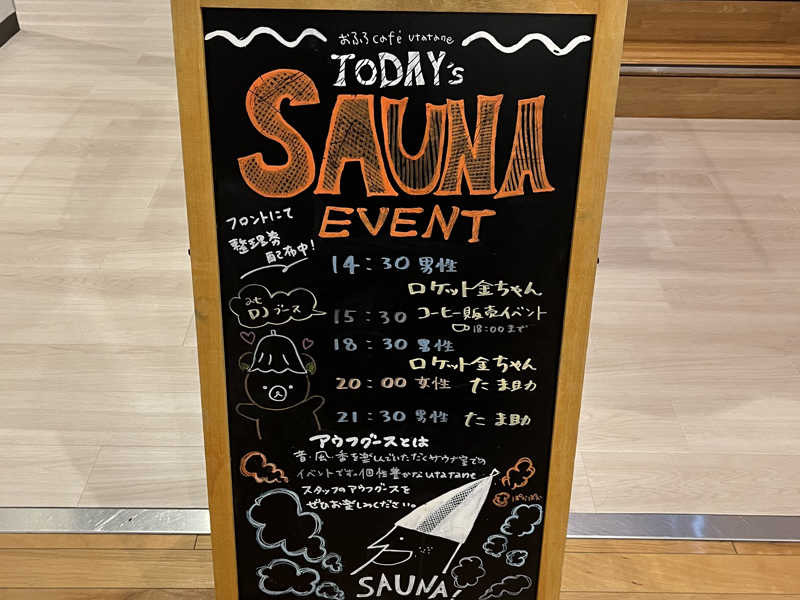 おふろcafé utatane
TODAY's
SAUNA
EVENT
フロントにて
整理券
配布中!
14:30 男性
ロケット金ちゃん
DJブース
15:30 コーヒー販売イベント
18:00まで
18:30 男性
ロケット金ちゃん
20:00 女性 たま助
21:30 男性 たま助
アウフグースとは
音・風・香を楽しんでいただくサウナ室での
イベントです。個性豊かなutatane
スタッフのアウフグースを
ぜひお楽しみください。
SAUNA!